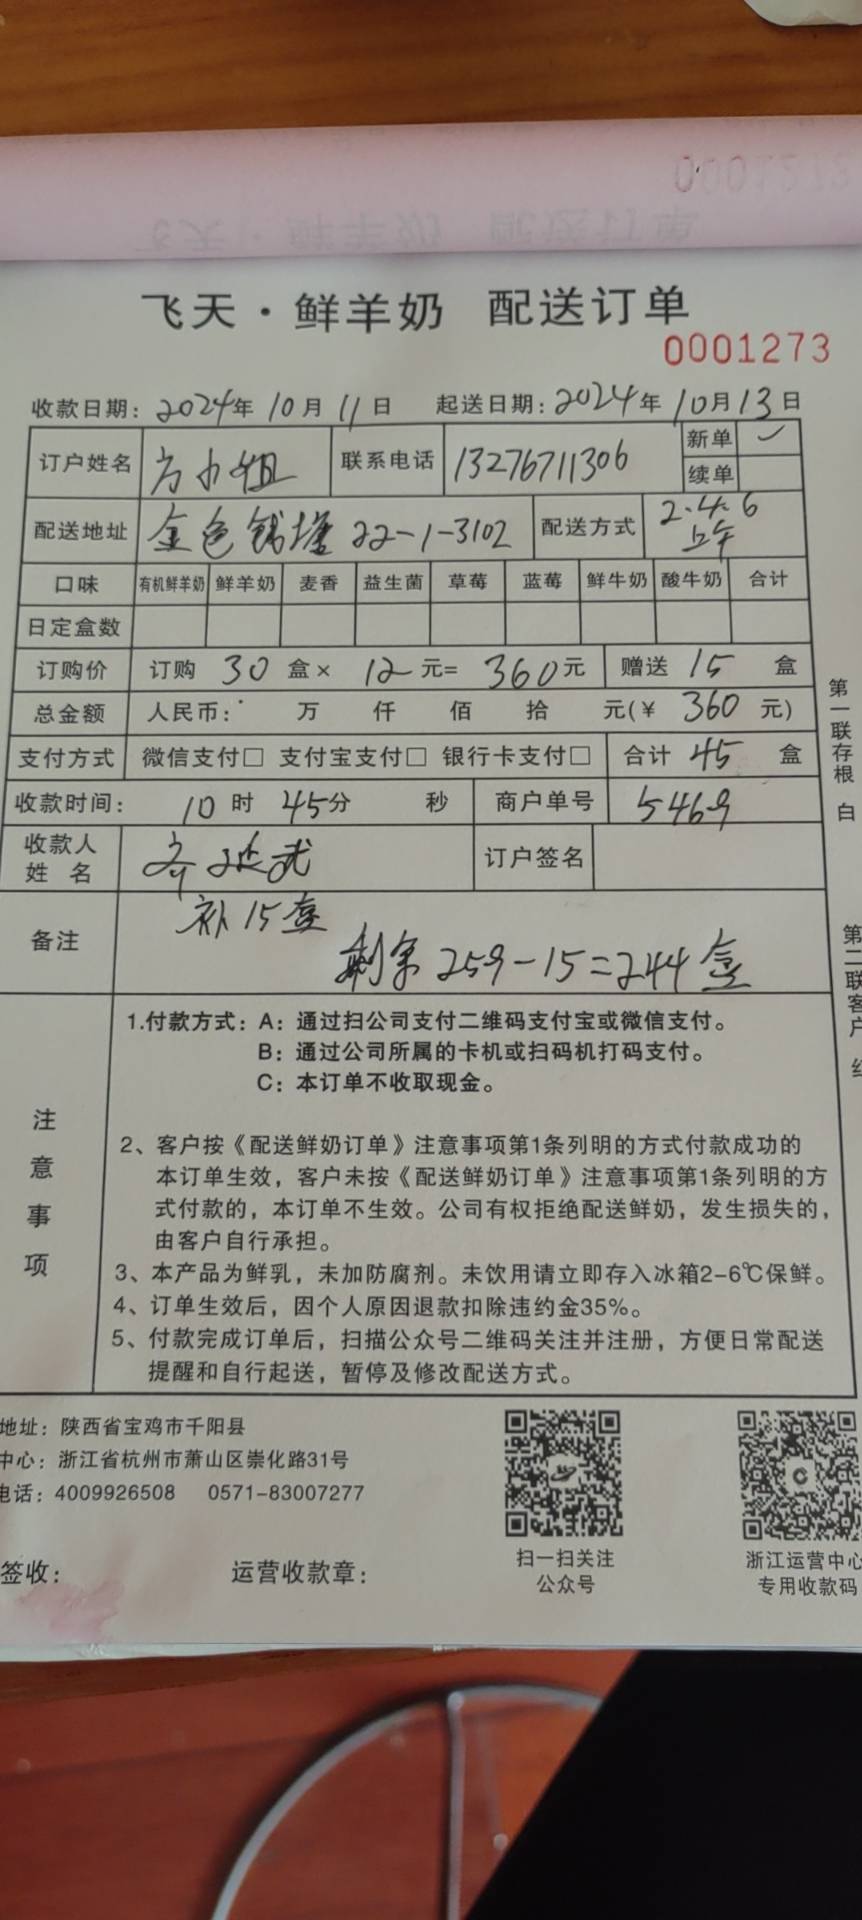 0001273
飞天·鲜羊奶 配送订单
飞天·鲜羊奶 配送订单
0001273
收款日期: 2024年 10月 11日 起送日期: 2024年 10月13日
订户姓名 方小姐 联系电话 13276711306 新单 ✓
续单
配送地址 金色钱塘 22-1-3102 配送方式 2.4.6
上午
口味 有机鲜羊奶 鲜羊奶 麦香 益生菌 草莓 蓝莓 鲜牛奶 酸牛奶 合计
日定盒数
订购价 订购 30 盒× 12 元= 360元 赠送 15 盒
总金额 人民币: 万 仟 佰 拾 元(¥ 360 元)
支付方式 微信支付□ 支付宝支付□ 银行卡支付□ 合计 45 盒
收款时间: 10时 45分 秒 商户单号 5469
收款人
姓 名 订户签名
备注 补15盒
剩余259-15=244盒
注意事项
1.付款方式: A: 通过扫公司支付二维码支付宝或微信支付。
B: 通过公司所属的卡机或扫码机打码支付。
C: 本订单不收取现金。
2、客户按《配送鲜奶订单》注意事项第1条列明的方式付款成功的
本订单生效，客户未按《配送鲜奶订单》注意事项第1条列明的方
式付款的，本订单不生效。公司有权拒绝配送鲜奶，发生损失的，
由客户自行承担。
3、本产品为鲜乳，未加防腐剂。未饮用请立即存入冰箱2-6℃保鲜。
4、订单生效后，因个人原因退款扣除违约金35%。
5、付款完成订单后，扫描公众号二维码关注并注册，方便日常配送
提醒和自行起送，暂停及修改配送方式。
第一联存根 白
第二联客户 红
地址: 陕西省宝鸡市千阳县
中心: 浙江省杭州市萧山区崇化路31号
电话: 4009926508 0571-83007277
签收: 运营收款章:
扫一扫关注
公众号
浙江运营中心
专用收款码